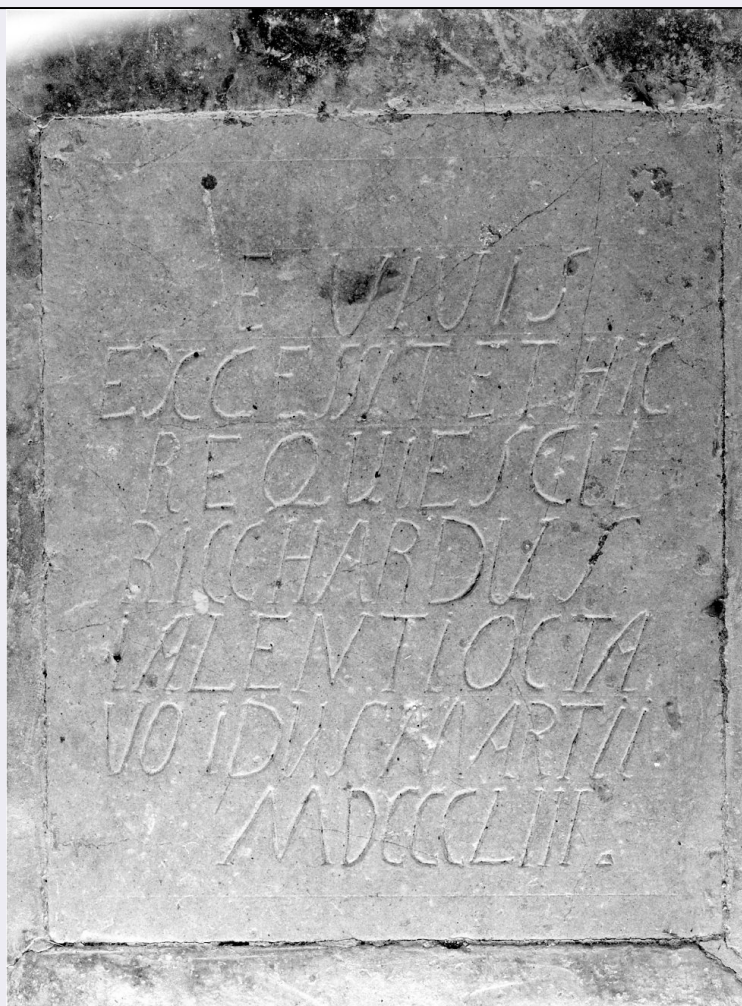 E VIVIS
EXCESSIT ET HIC
REQUIESCIT
RICCHARDUS
VALENTI OCTA
VO IDUS MARTII
MDCCCCLIII.